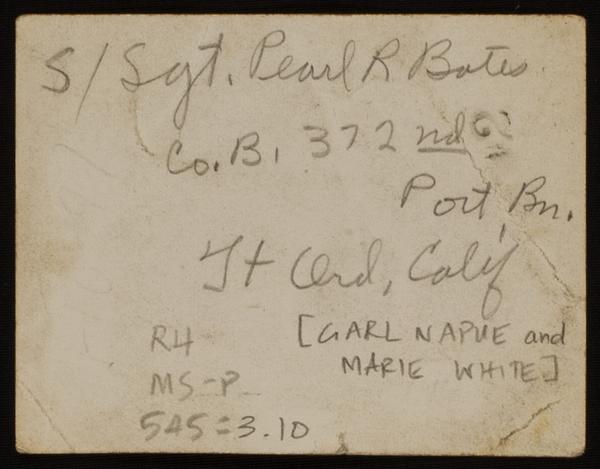 S/Sgt. Pearl R Bates
Co. B, 372nd
Port Bn.
Ft Ord, Calif
[GARL NAPUE and
MARIE WHITE]
R4
MS-P
545=3.10